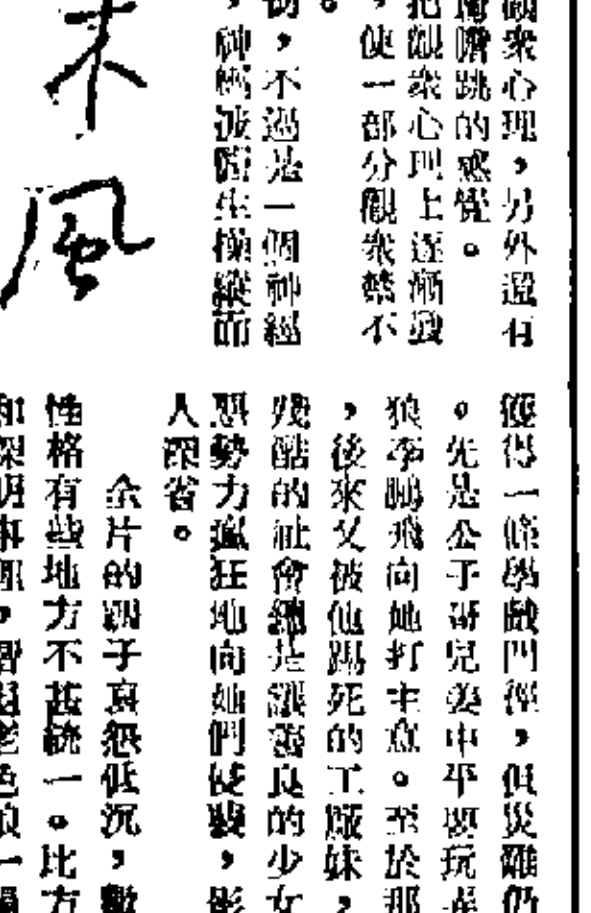 觀衆心理，另外還有
膽跳的感覺。
把觀衆心理上逐漸
，使一部分觀衆 不
。
，不過是一個神經
，神 被 生操縱而
未風
獲得一條學戲門徑，但災難仍
。先是公子哥兒姜中平要玩弄
狼李鵬飛向她打主意。至於那
，後來又被他踢死的工廠妹，
殘酷的社會總是讓善良的少女
惡勢力瘋狂地向她們 襲，影
人深省。
余片的調子哀怨低沉，
性格有些地方不甚統一。比方
和深明事理，